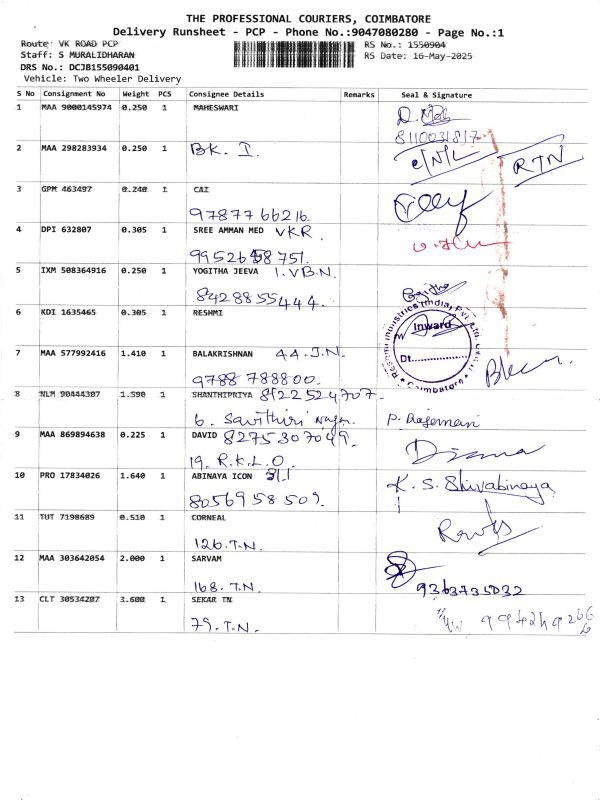 THE PROFESSIONAL COURIERS, COIMBATORE
Delivery Runsheet - PCP - Phone No.:9047080280 - Page No.:1
Route: VK ROAD PCP
RS No.: 1550904
Staff: S MURALIDHARAN
RS Date: 16-May-2025
DRS No.: DCJB155090401
Vehicle: Two Wheeler Delivery
S No Consignment No Weight PCS Consignee Details Remarks Seal & Signature
1 MAA 9000145974 0.250 1 MAHESWARI
8110031817
2 MAA 298283934 0.250 1 BK. I.
RTN
3 GPM 463497 0.240 1 CAI
9787766216.
4 DPI 632807 0.305 1 SREE AMMAN MED VKR.
9952658751.
5 IXM 508364916 0.250 1 YOGITHA JEEVA 1. V.B.N.
8428855444.
6 KDI 1635465 0.305 1 RESHMI
Reshmi Industries (India) Pvt. Ltd.
Inward
Dt.
Coimbatore
7 MAA 577992416 1.410 1 BALAKRISHNAN 44. J.N.
9788788800.
8 NLM 90444307 1.590 1 SHANTHIPRIYA 8122524707.
6. Savithiri Nagar P. Rajamani
9 MAA 869894638 0.225 1 DAVID 8275307049.
19. R.K.L.O.
10 PRO 17834026 1.640 1 ABINAYA ICON 311 K. S. Shivabinaya
8056958509.
11 TUT 7198689 0.510 1 CORNEAL
126. T.N.
12 MAA 303642054 2.000 1 SARVAM
168. T.N. 9363735032
13 CLT 30534207 3.600 1 SEKAR TN
79. T.N. 9942492666